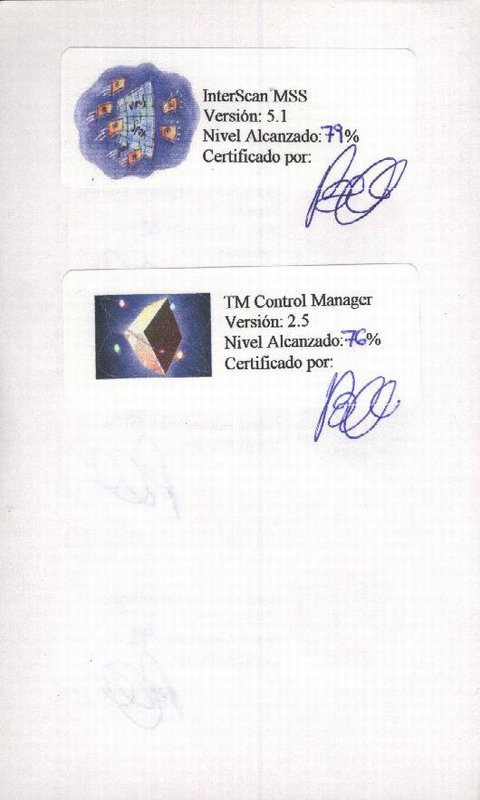 InterScan MSS
Versión: 5.1
Nivel Alcanzado: 79%
Certificado por:
TM Control Manager
Versión: 2.5
Nivel Alcanzado: 76%
Certificado por: